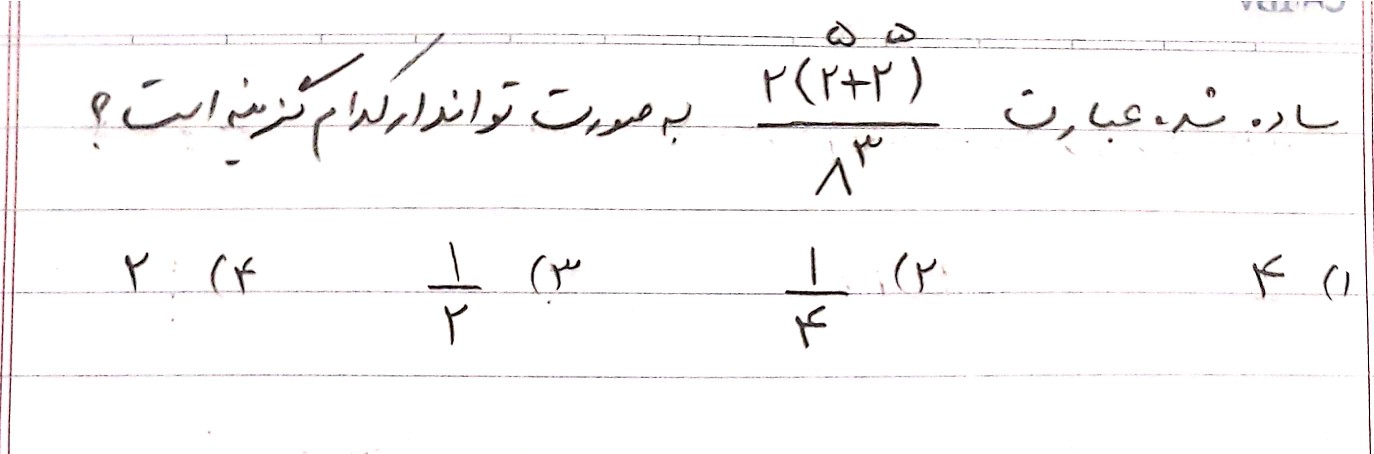 ساده شده عبارت ۲(۲⁵+۲⁵)/۸³ به صورت تواندار کدام گزینه است؟
۱) ۴ ۲) ۱/۴ ۳) ۱/۲ ۴) ۲